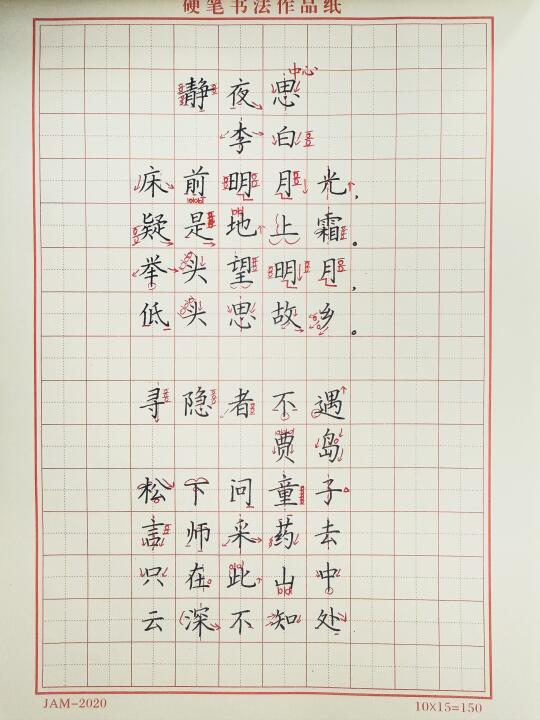 硬笔书法作品纸
中心
静夜思
李白
床前明月光，
疑是地上霜。
举头望明月，
低头思故乡。
寻隐者不遇
贾岛
松下问童子
言师采药去
只在此山中
云深不知处
JAM-2020
10X15=150